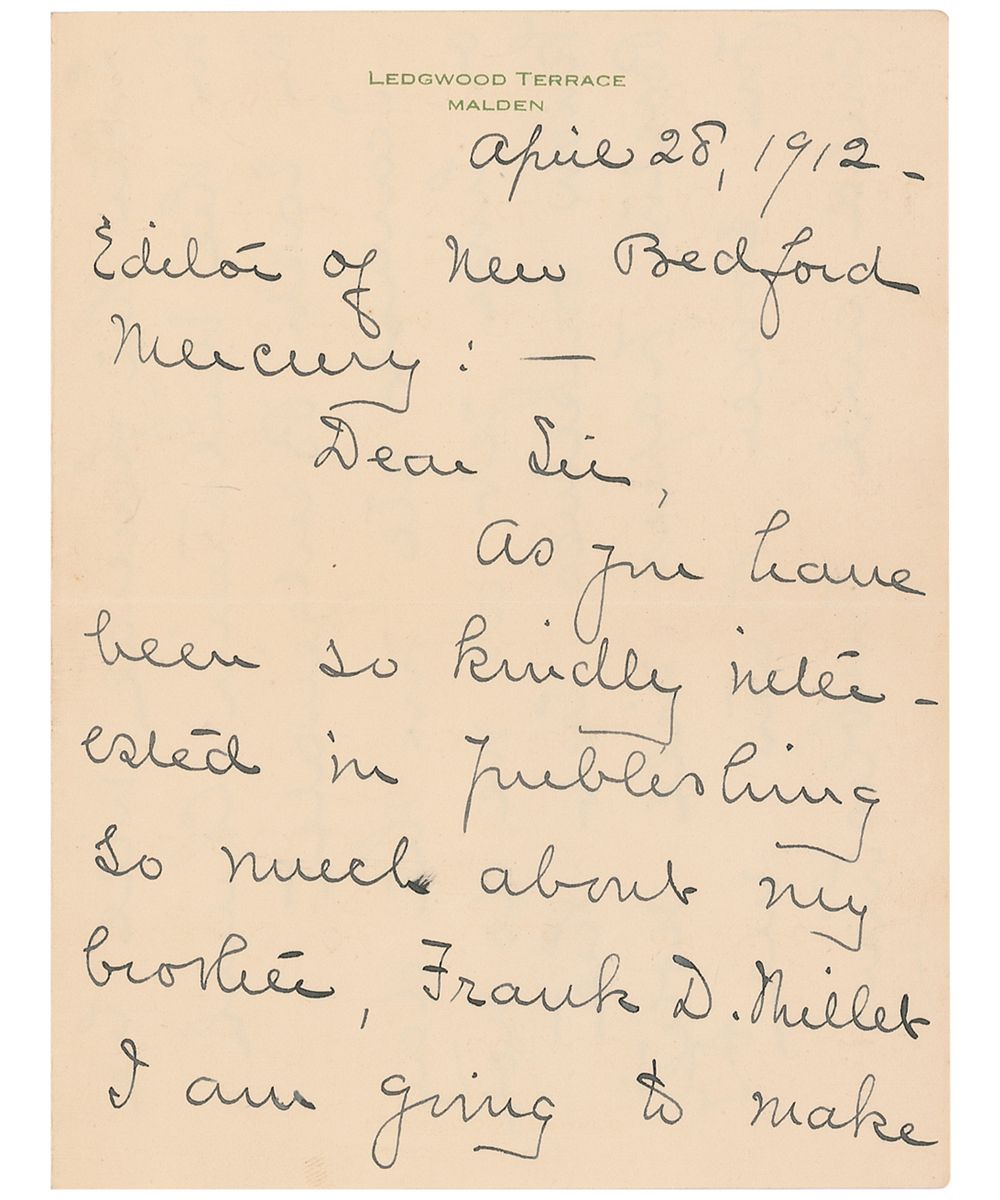 LEDGWOOD TERRACE
MALDEN
April 28, 1912 -
Editor of New Bedford
Mercury : —
Dear Sir,
As you have
been so kindly inter-
ested in publishing
so much about my
brother, Frank D. Millet
I am going to make